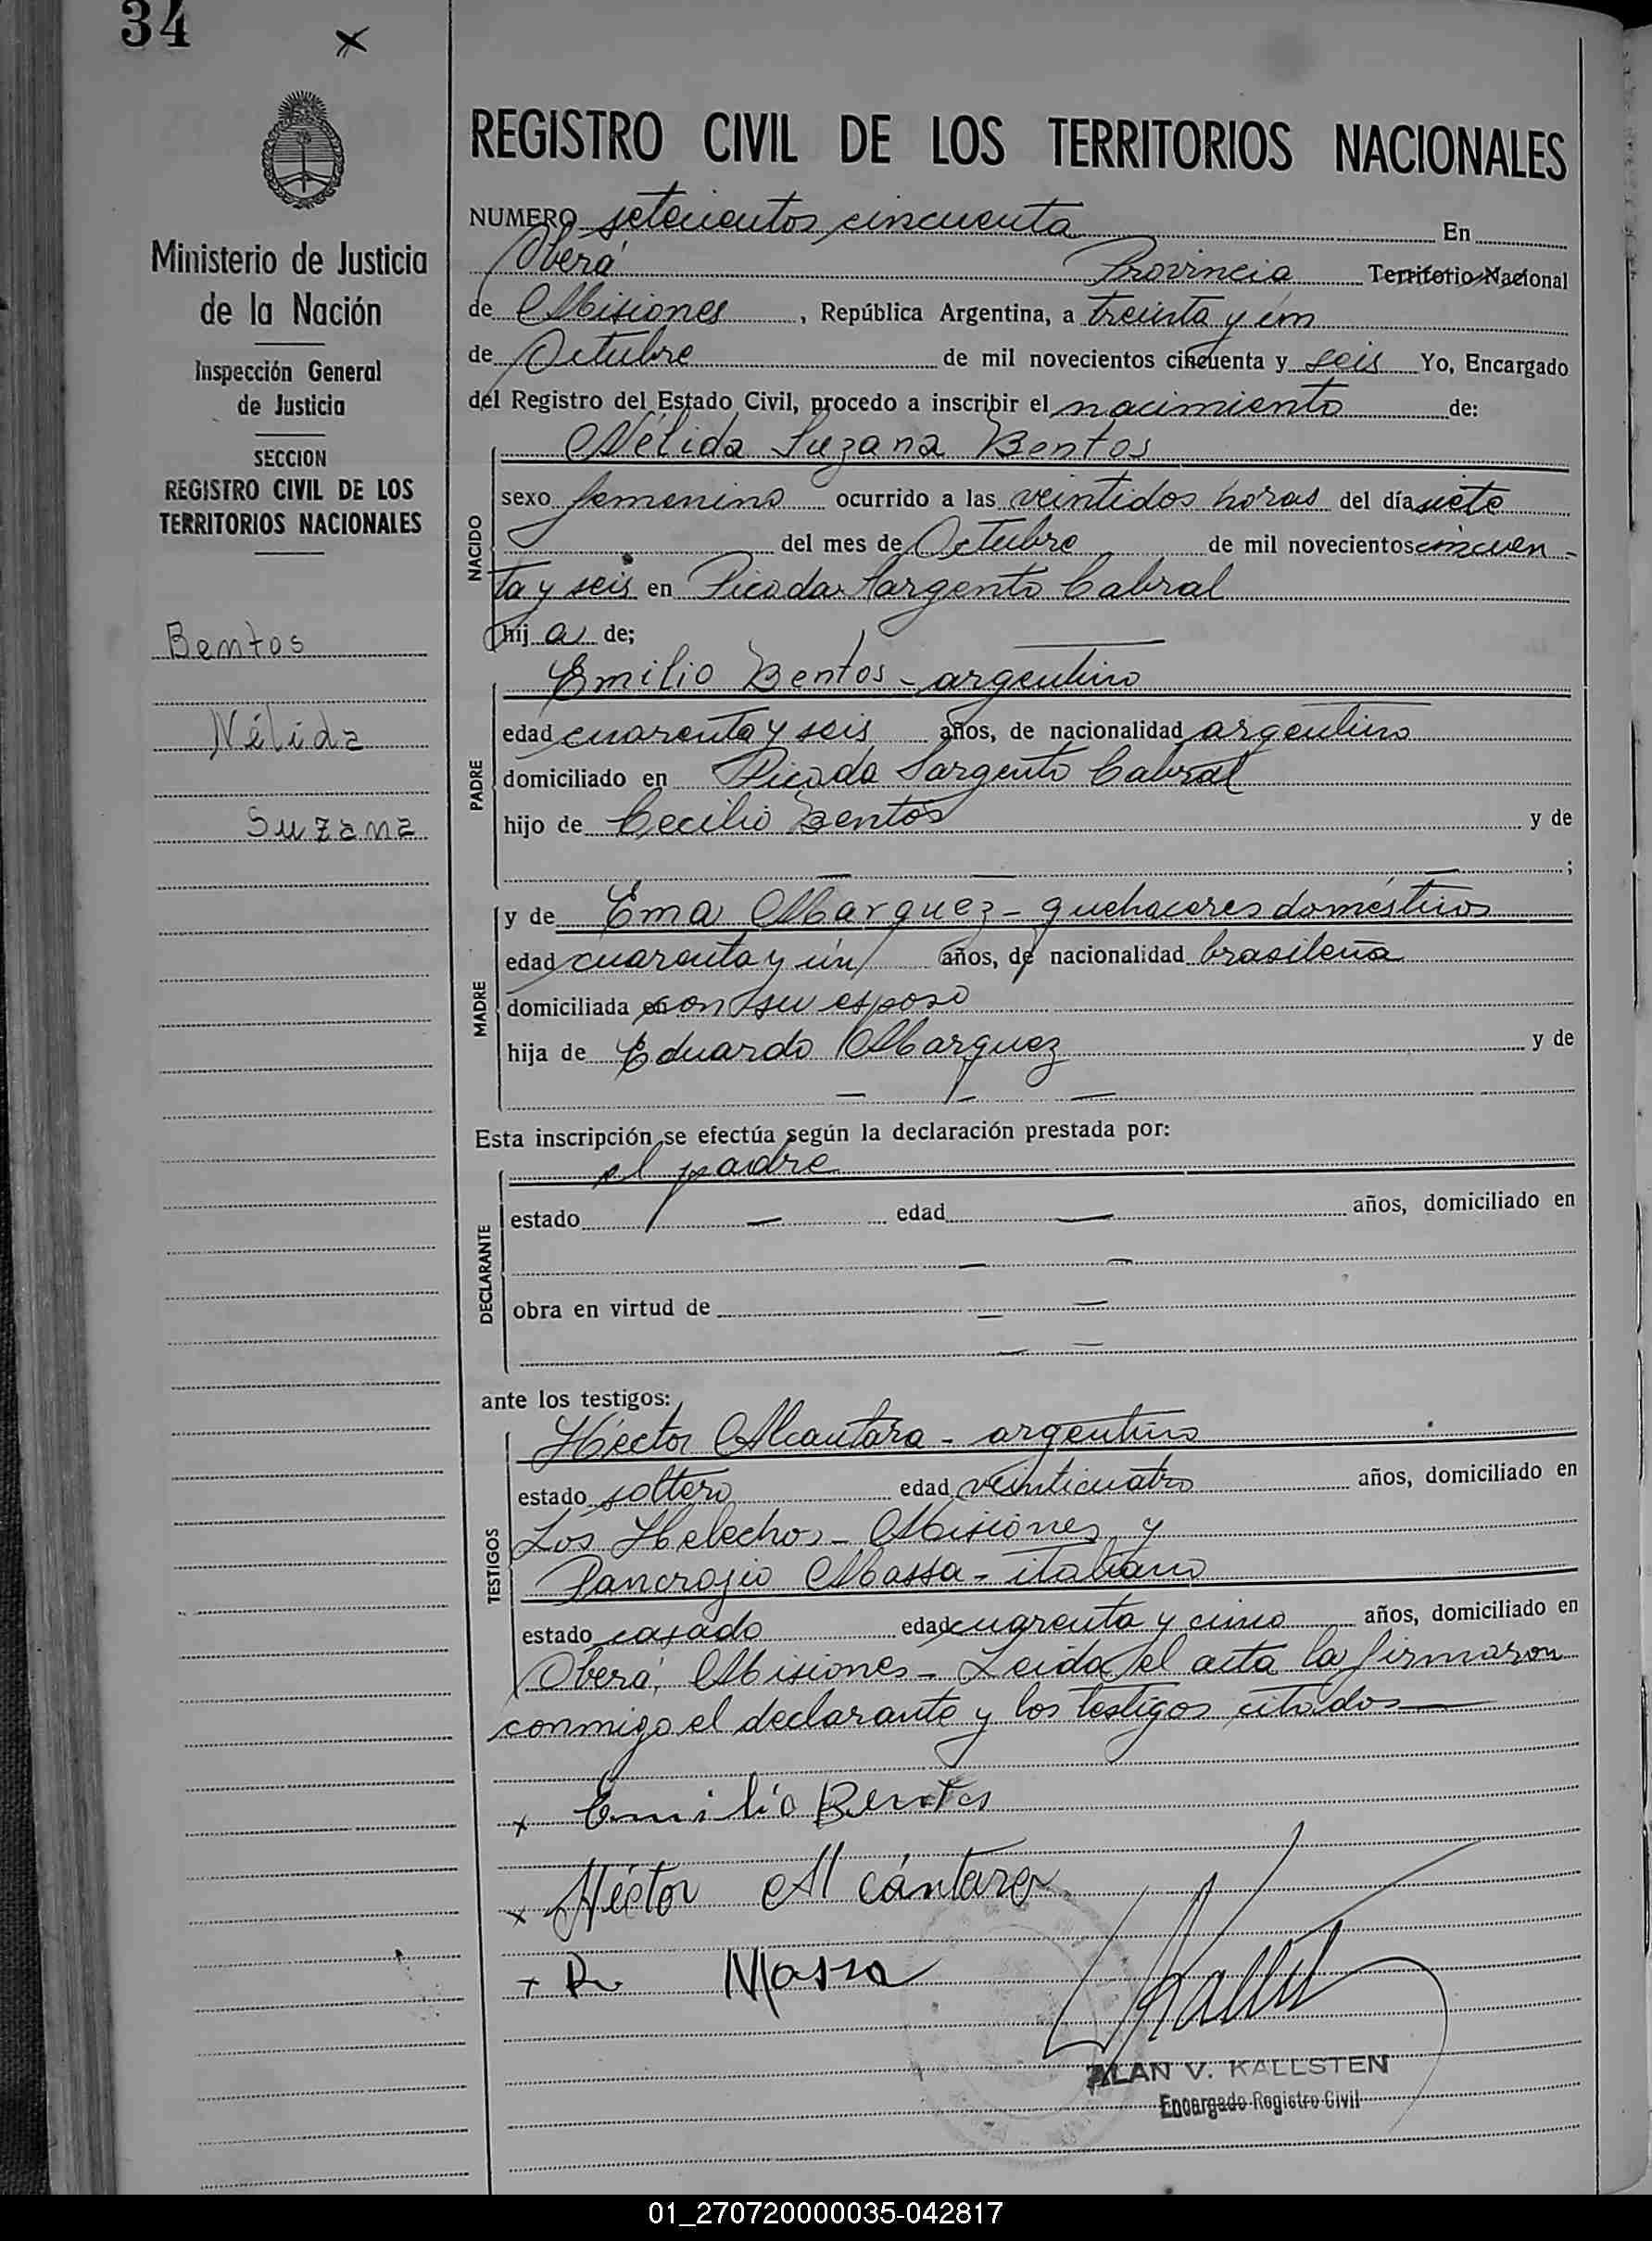 34
Ministerio de Justicia
de la Nación
Inspección General
de Justicia
SECCION
REGISTRO CIVIL DE LOS
TERRITORIOS NACIONALES
Bentos
Nélida
Suzana
REGISTRO CIVIL DE LOS TERRITORIOS NACIONALES
NUMERO setecientos cincuenta En
Oberá Provincia Territorio Nacional
de Misiones, República Argentina, a treinta y un
de Octubre de mil novecientos cincuenta y seis Yo, Encargado
del Registro del Estado Civil, procedo a inscribir el nacimiento de:
NACIDO
Nélida Suzana Bentos
sexo femenino ocurrido a las veintidos horas del día siete
del mes de Octubre de mil novecientos cincuen-
ta y seis en Picada Sargento Cabral
hija de;
PADRE
Emilio Bentos - argentino
edad cuarenta y seis años, de nacionalidad argentino
domiciliado en Picada Sargento Cabral
hijo de Cecilio Bentos y de
— — ;
MADRE
y de Ema Marquez - quehaceres domésticos
edad cuarenta y ún años, de nacionalidad brasileña
domiciliada en con su esposo
hija de Eduardo Marquez y de
— — —
Esta inscripción se efectúa según la declaración prestada por:
DECLARANTE
el padre
estado — edad — años, domiciliado en
— —
obra en virtud de — —
— —
ante los testigos:
TESTIGOS
Héctor Alcantara - argentino
estado soltero edad veinticuatro años, domiciliado en
Los Helechos - Misiones y
Pancrasio Massa - italiano
estado casado edad cuarenta y cinco años, domiciliado en
Oberá, Misiones - Leida el acta la firmaron
conmigo el declarante y los testigos citados —
x Emilio Bentos
x Héctor Alcántara
x P. Massa
ALAN V. KALLSTEN
Encargado Registro Civil
01_270720000035-042817